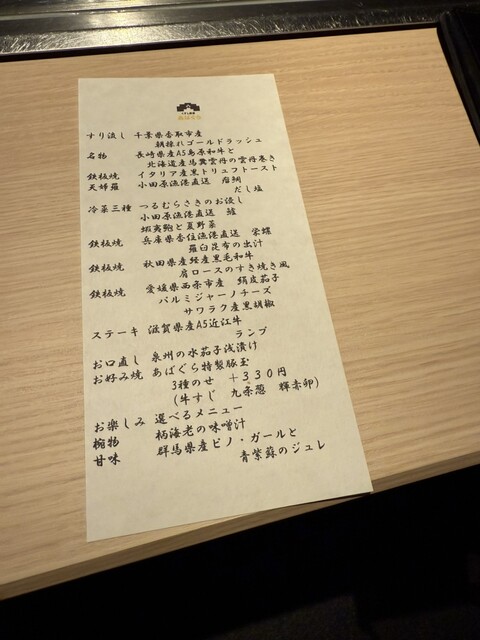 すり流し 千葉県香取市産
朝採れゴールドラッシュ
名物 長崎県産A5島原和牛と
北海道産馬糞雲丹の雲丹巻き
鉄板焼 イタリア産黒トリュフトースト
天婦羅 小田原漁港直送
だし塩
冷菜三種 つるむらさきのお浸し
小田原漁港直送
蝦夷鮑と夏野菜
鉄板焼 兵庫県香住漁港直送 栄螺
羅臼昆布の出汁
鉄板焼 秋田県産経産黒毛和牛
肩ロースのすき焼き風
鉄板焼 愛媛県西条市産 絹皮茄子
パルミジャーノチーズ
サワラク産黒胡椒
ステーキ 滋賀県産A5近江牛
ランプ
お口直し 泉州の水茄子浅漬け
お好み焼 あばぐら特製豚玉
3種のせ +330円
(牛すじ 九条葱 輝赤卵)
お楽しみ 選べるメニュー
椀物 柄海老の味噌汁
甘味 群馬県産ピノ・ガールと
青紫蘇のジュレ